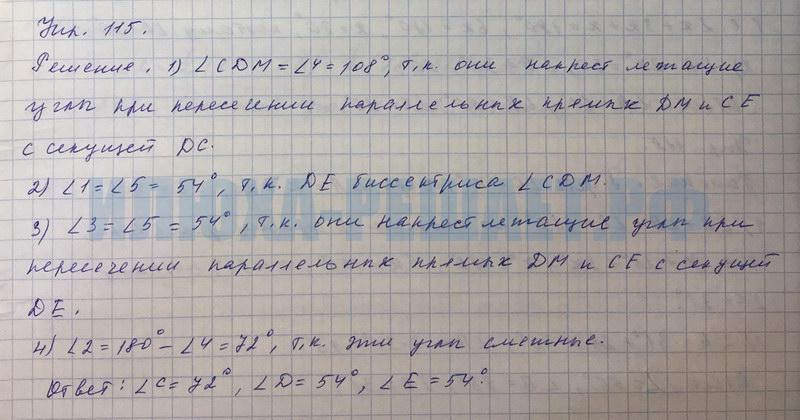 Упр. 115.
Решение. 1) ∠CDM = ∠4 = 108°, т.к. они накрест лежащие
углы при пересечении параллельных прямых DM и CE
с секущей DC.
2) ∠1 = ∠5 = 54°, т.к. DE биссектриса ∠CDM.
3) ∠3 = ∠5 = 54°, т.к. они накрест лежащие углы при
пересечении параллельных прямых DM и CE с секущей
DE.
4) ∠2 = 180° - ∠4 = 72°, т.к. эти углы смежные.
Ответ: ∠C = 72°, ∠D = 54°, ∠E = 54°.